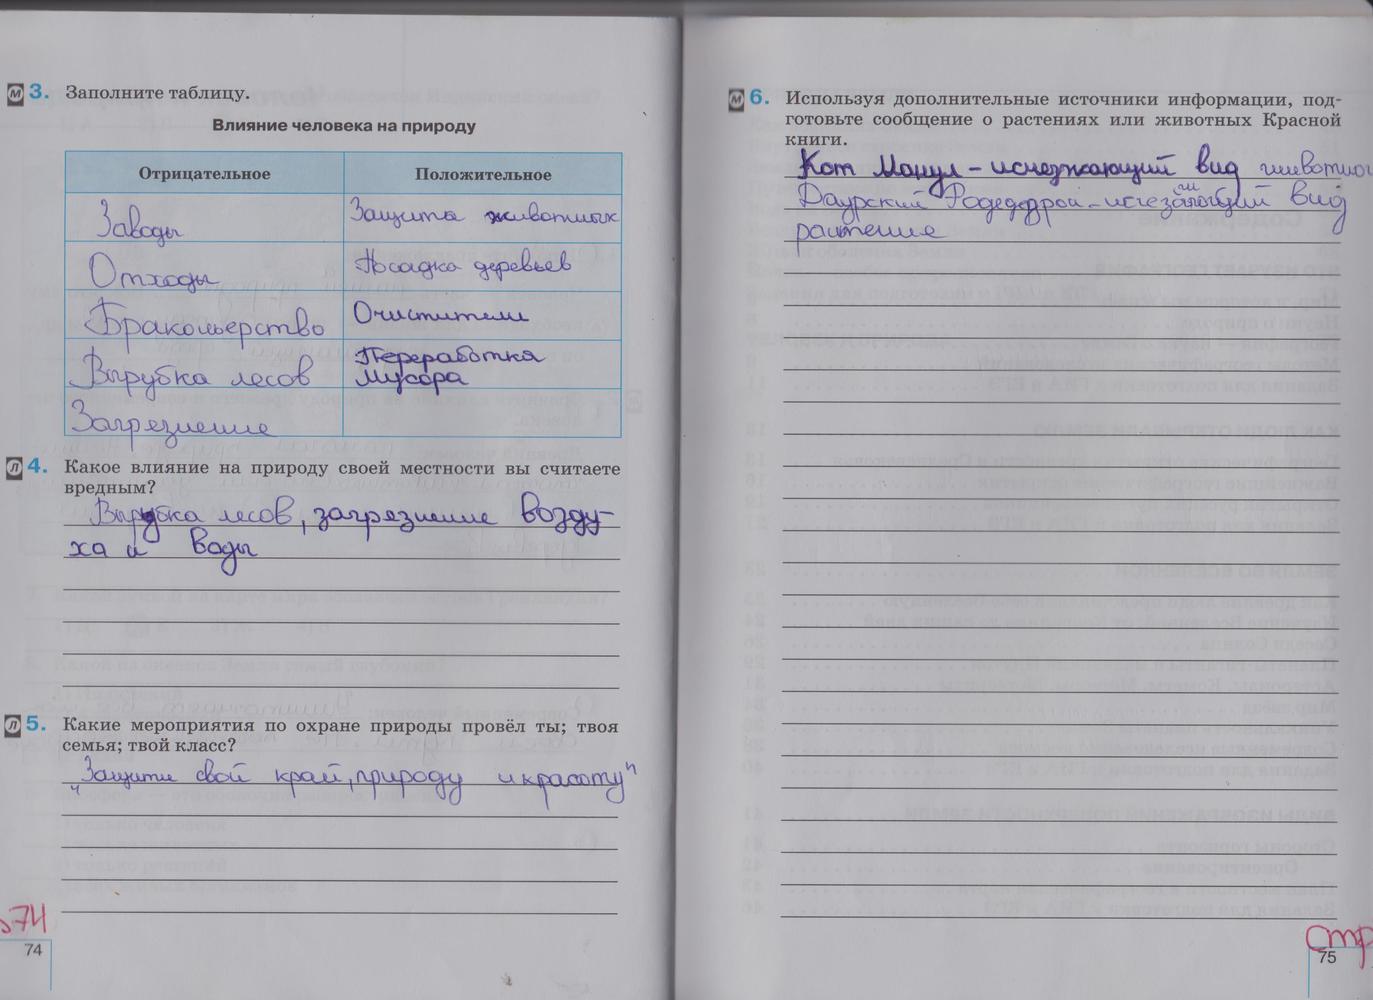 М 3. Заполните таблицу.
Влияние человека на природу
Отрицательное Положительное
Заводы Защита животных
Отходы Посадка деревьев
Браконьерство Очистители
Вырубка лесов Переработка
мусора
Загрязнение
Л 4. Какое влияние на природу своей местности вы считаете
вредным?
Вырубка лесов, загрязнение возду-
ха и воды
Л 5. Какие мероприятия по охране природы провёл ты; твоя
семья; твой класс?
„Защити свой край, природу и красоту"
74
74
М 6. Используя дополнительные источники информации, под-
готовьте сообщение о растениях или животных Красной
книги.
Кот Манул – исчезающий вид животног
Даурский – вид
растение
стр
75